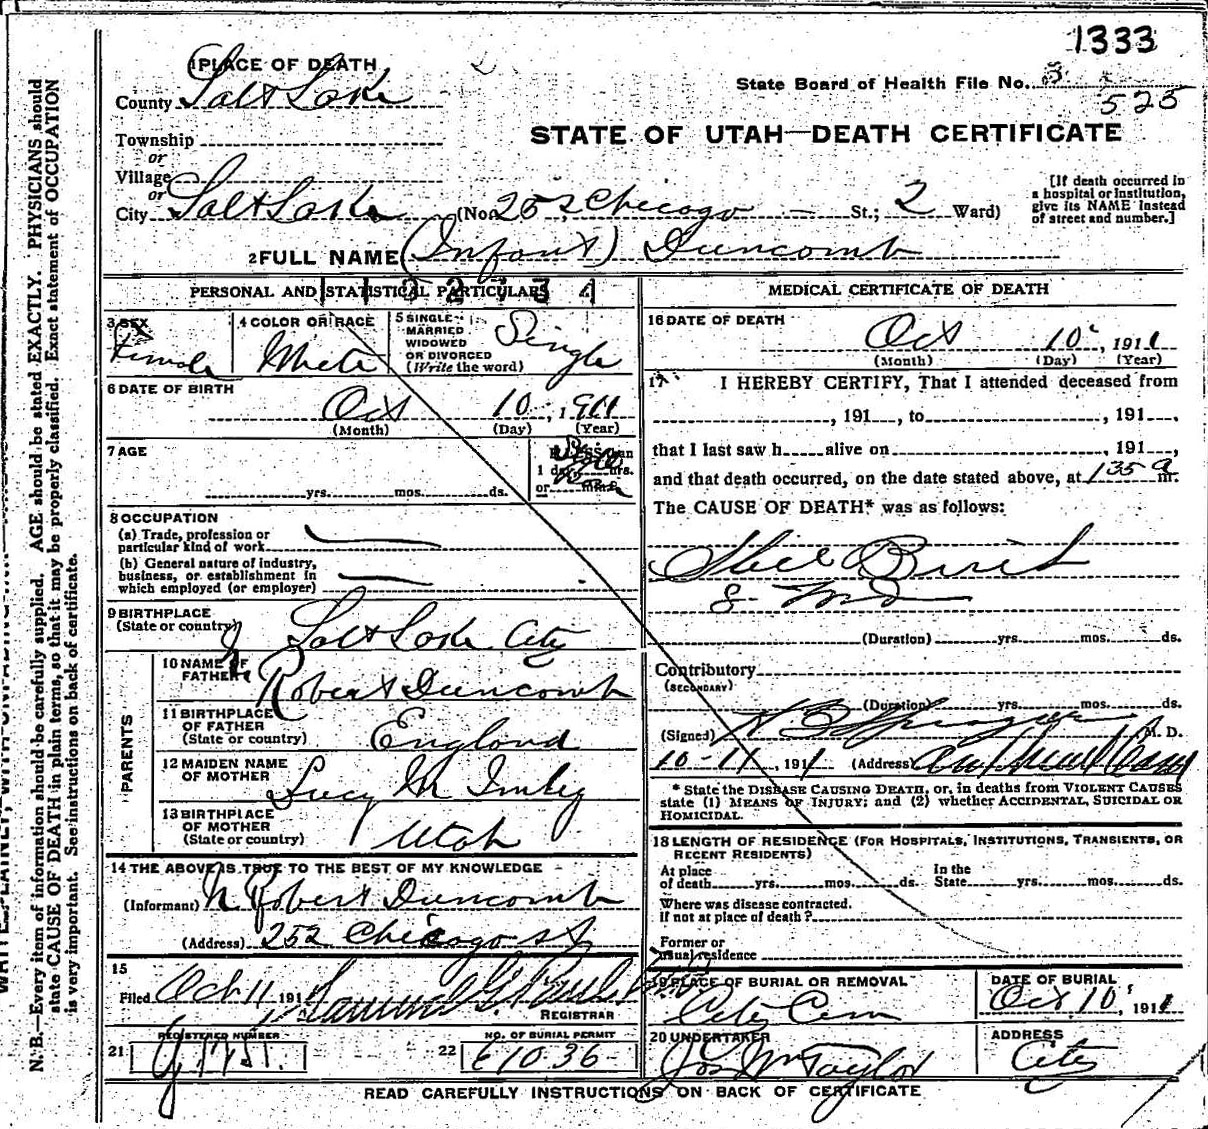 1333
1 PLACE OF DEATH
State Board of Health File No. 3
525
County Salt Lake
STATE OF UTAH—DEATH CERTIFICATE
Township
or
Village
or
City Salt Lake (No. 252 Chicago — St.; 2 Ward)
[If death occurred in
a hospital or institution,
give its NAME instead
of street and number.]
2 FULL NAME (Infant) Duncomb
PERSONAL AND STATISTICAL PARTICULARS
3 SEX Female
4 COLOR OR RACE White
5 SINGLE
MARRIED
WIDOWED
OR DIVORCED
(Write the word) Single
6 DATE OF BIRTH
Oct 10, 1911
(Month) (Day) (Year)
7 AGE
yrs. mos. ds.
1 day, hrs.
or min.
8 OCCUPATION
(a) Trade, profession or
particular kind of work
(b) General nature of industry,
business, or establishment in
which employed (or employer)
9 BIRTHPLACE
(State or country) Salt Lake City
PARENTS
10 NAME OF
FATHER Robert Duncomb
11 BIRTHPLACE
OF FATHER
(State or country) England
12 MAIDEN NAME
OF MOTHER Lucy M
13 BIRTHPLACE
OF MOTHER
(State or country) Utah
14 THE ABOVE IS TRUE TO THE BEST OF MY KNOWLEDGE
(Informant) Robert Duncomb
(Address) 252 Chicago St
15
Filed Oct 11 191
REGISTRAR
REGISTERED NUMBER
21
NO. OF BURIAL PERMIT
22 E1036
MEDICAL CERTIFICATE OF DEATH
16 DATE OF DEATH
Oct 10, 1911
(Month) (Day) (Year)
17 I HEREBY CERTIFY, That I attended deceased from
, 191 , to , 191 ,
that I last saw h alive on , 191 ,
and that death occurred, on the date stated above, at 135 a m.
The CAUSE OF DEATH* was as follows:
Still Birth
8
(Duration) yrs. mos. ds.
Contributory
(SECONDARY)
(Duration) yrs. mos. ds.
(Signed) M. D.
10-11, 1911 (Address)
* State the DISEASE CAUSING DEATH, or, in deaths from VIOLENT CAUSES
state (1) MEANS OF INJURY; and (2) whether ACCIDENTAL, SUICIDAL OR
HOMICIDAL.
18 LENGTH OF RESIDENCE (FOR HOSPITALS, INSTITUTIONS, TRANSIENTS, OR
RECENT RESIDENTS)
At place
of death yrs. mos. ds.
In the
State yrs. mos. ds.
Where was disease contracted.
If not at place of death?
Former or
usual residence
19 PLACE OF BURIAL OR REMOVAL
City Cem
DATE OF BURIAL
Oct 10, 1911
20 UNDERTAKER
Jos Wm Taylor
ADDRESS
City
READ CAREFULLY INSTRUCTIONS ON BACK OF CERTIFICATE
N. B.—Every item of information should be carefully supplied. AGE should be stated EXACTLY. PHYSICIANS should
state CAUSE OF DEATH in plain terms, so that it may be properly classified. Exact statement of OCCUPATION
is very important. See instructions on back of certificate.